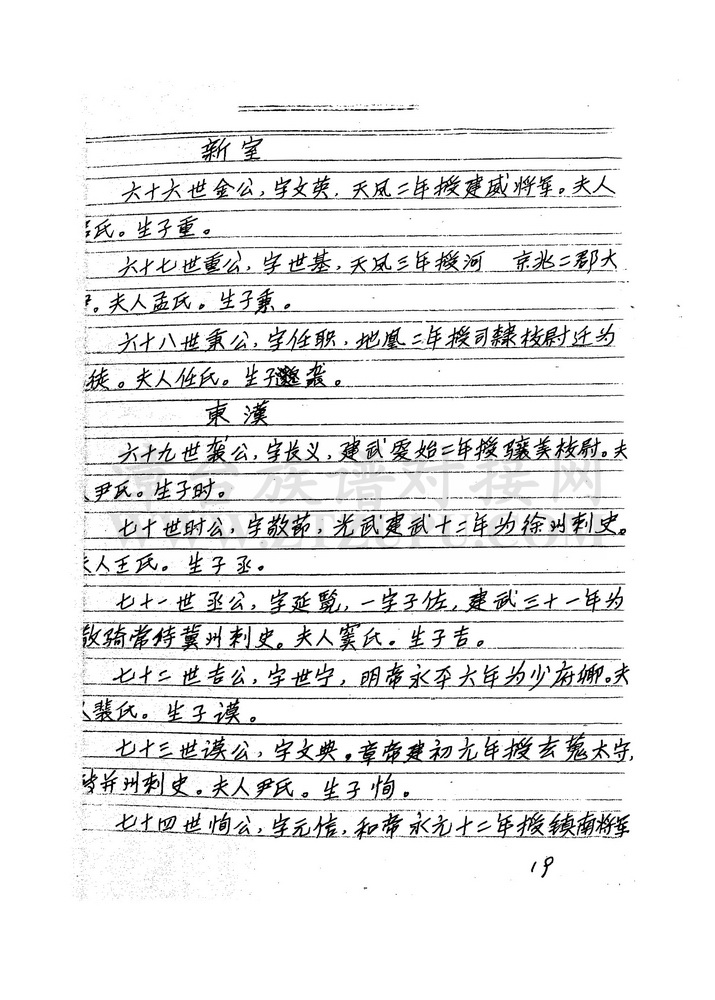 新室
六十六世金公，字文英，天凤二年授建威将军。夫人
氏。生子重。
六十七世重公，字世基，天凤三年授河　京兆二郡大
。夫人孟氏。生子秉。
六十八世秉公，字任职，地凰二年授司隸校尉迁为
徒。夫人任氏。生子袭。
東漢
六十九世袭公，字长义，建武更始二年授骧美校尉。夫
人尹氏。生子时。
七十世时公，字敬節，光武建武十二年为徐州刺史。
夫人王氏。生子丞。
七十一世丞公，字延覽，一字子佐，建武三十一年为
散骑常侍冀州刺史。夫人窦氏。生子吉。
七十二世吉公，字世宁，明帝永平六年为少府卿。夫
人裴氏。生子谟。
七十三世谟公，字文典。章帝建初元年授玄菟太守，
并州刺史。夫人尹氏。生子恂。
七十四世恂公，字元信，和帝永元十二年授镇南将军
19
漳台族谱对接网
WWW.ZTZUPU.COM